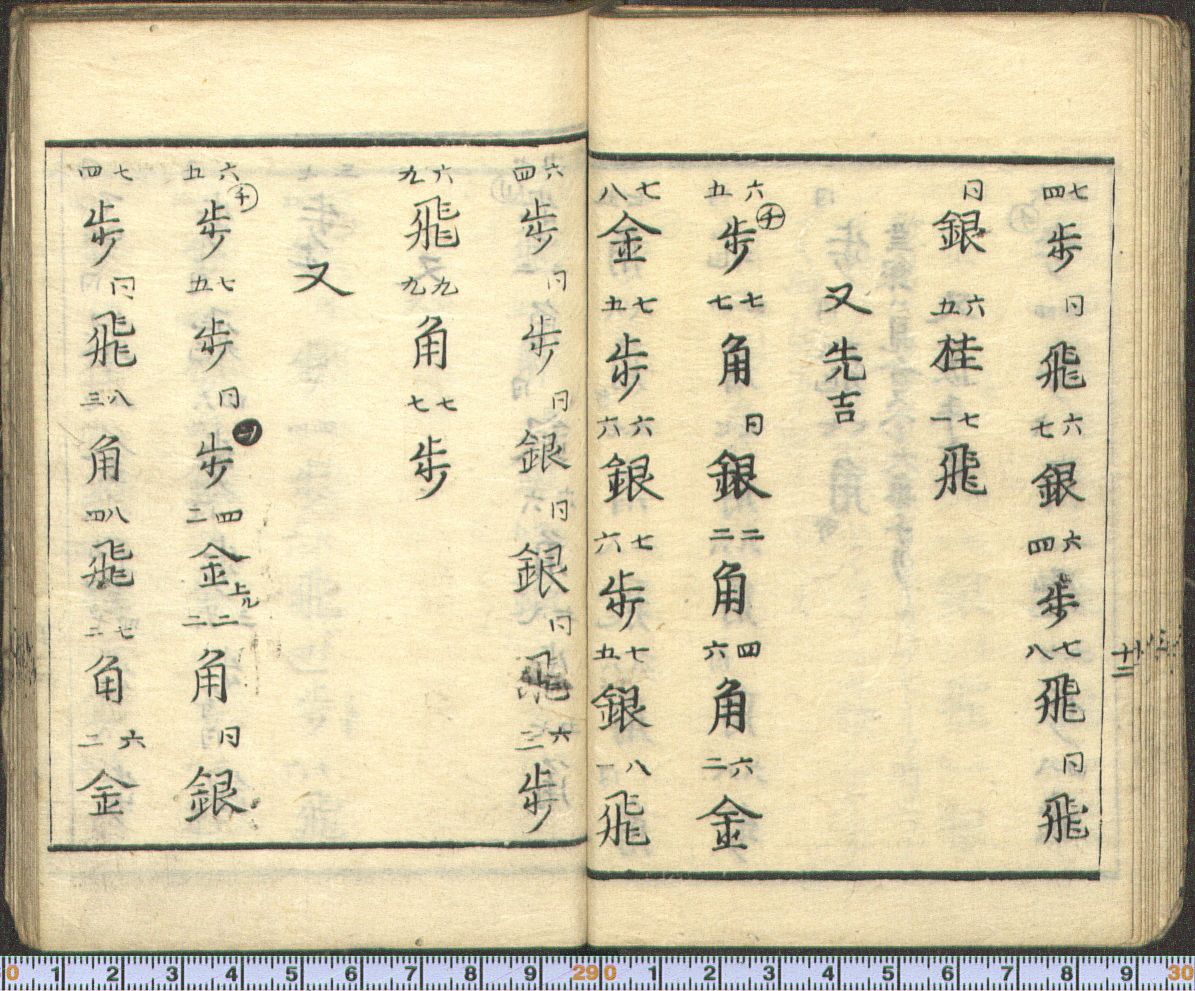 七四歩 同飛 六七銀 六四歩 七八飛 同飛
同銀 六五桂 七一飛
又先吉
六五歩 チ 七七角 同銀 二二角 四六角 六二金
七八金 七五歩 六六銀 七六歩 七五銀 八一飛
十二
六四歩 同歩 同銀 同銀 同飛 六三歩
六九飛 九九角 七七歩
又
六五歩 チ 七五歩 同歩 四二金上ル 二二角 同銀
七四歩 同飛 八三角 八四飛 七二角 六二金
0 1 2 3 4 5 6 7 8 9 29 0 1 2 3 4 5 6 7 8 9 30